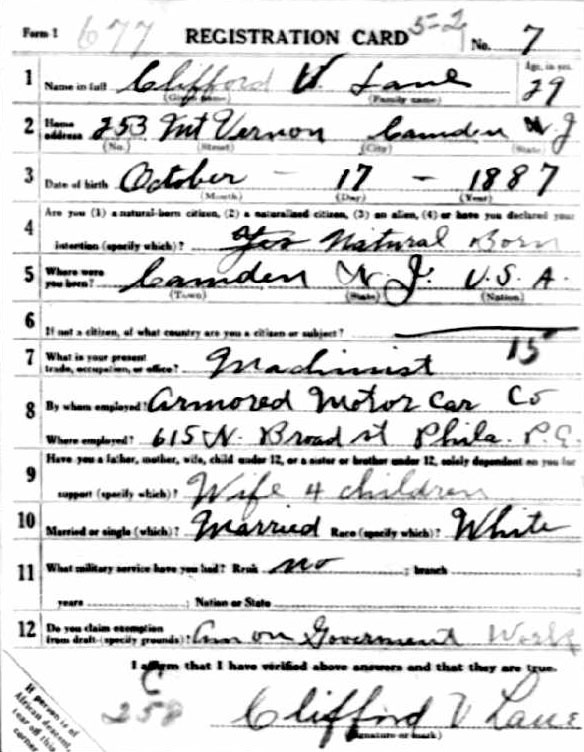 Form 1 677 REGISTRATION CARD 5-2 No. 7
1 Name in full Clifford V Lane Age, in yrs. 29
(Given name) (Family name)
2 Home address 253 Mt Vernon Camden N.J
(No.) (Street) (City) (State)
3 Date of birth October - 17 - 1887
(Month) (Day) (Year)
4 Are you (1) a natural-born citizen, (2) a naturalized citizen, (3) an alien, (4) or have you declared your
intention (specify which)? Yes Natural Born
5 Where were you born? Camden N.J. U.S.A.
(Town) (State) (Nation)
6 If not a citizen, of what country are you a citizen or subject?
15
7 What is your present trade, occupation, or office? Machinist
8 By whom employed? Armored Motor Car Co
Where employed? 615 N. Broad st Phila. Pa.
9 Have you a father, mother, wife, child under 12, or a sister or brother under 12, solely dependent on you for
support (specify which)? Wife 4 children
10 Married or single (which)? Married Race (specify which)? White
11 What military service have you had? Rank no ; branch
years ; Nation or State
12 Do you claim exemption from draft (specify grounds)? Am on Goverment Work
I affirm that I have verified above answers and that they are true.
C
258
Clifford V Lane
(Signature or mark)
If person is of
African descent,
tear off this
corner